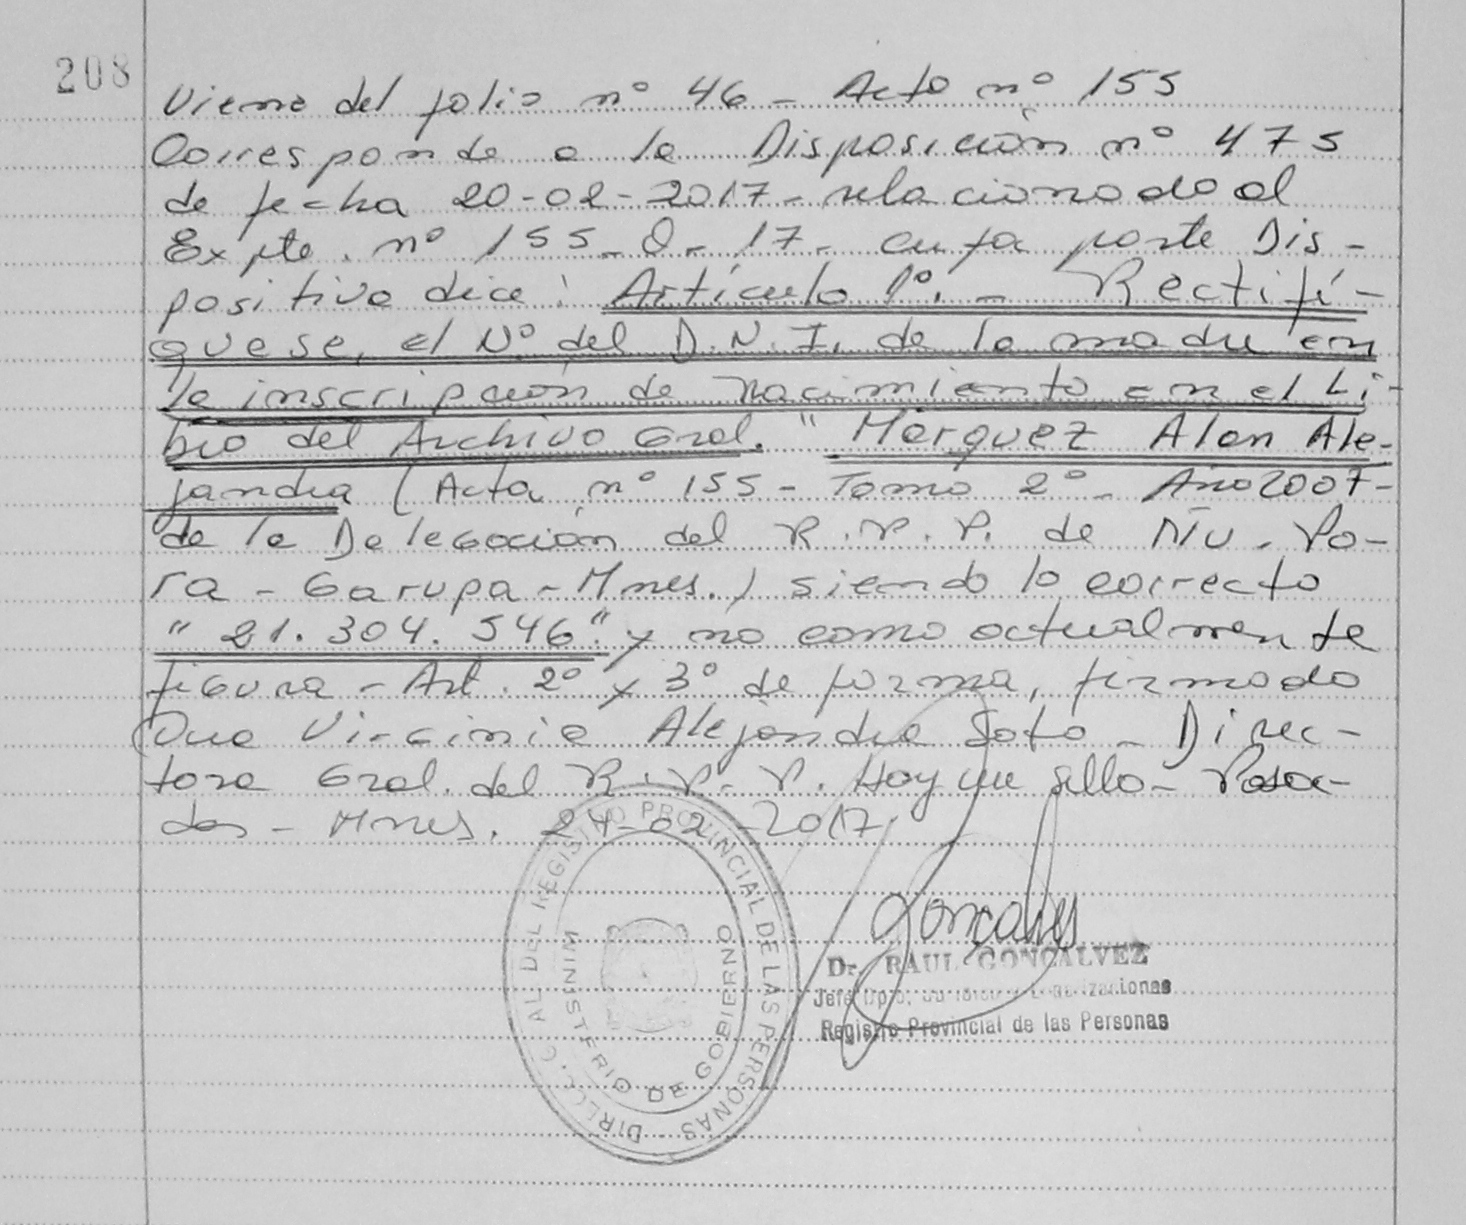 208
Viene del folio nº 46 - Acta nº 155
Corresponde a la Disposición nº 475
de fecha 20-02-2017- relacionado al
Expte. nº 155-O-17- cuya parte Dis-
positiva dice: Artículo 1º. - Rectifí-
quese, el Nº del D.N.I. de la madre en
la inscripción de nacimiento en el Li-
bro del Archivo Gral. "Marquez Alan Ale-
jandra (Acta nº 155 - Tomo 2º - Año 2007-
de la Delegación del R.P.P. de Ñu-Po-
ra - Garupa - Mnes.) siendo lo correcto
"21.304.546" y no como actualmente
figura - Art. 2º y 3º de forma, firmado
Dra Virginia Alejandra Soto - Direc-
tora Gral. del R.P.P. Hay un sello - Posa-
das - Mnes. 24-02-2017
Goncalves
Dr. RAUL GONCALVEZ
Jefe Dpto.
Registro Provincial de las Personas
AL DEL REGISTRO PROVINCIAL DE LAS PERSONAS
MINISTERIO DE GOBIERNO